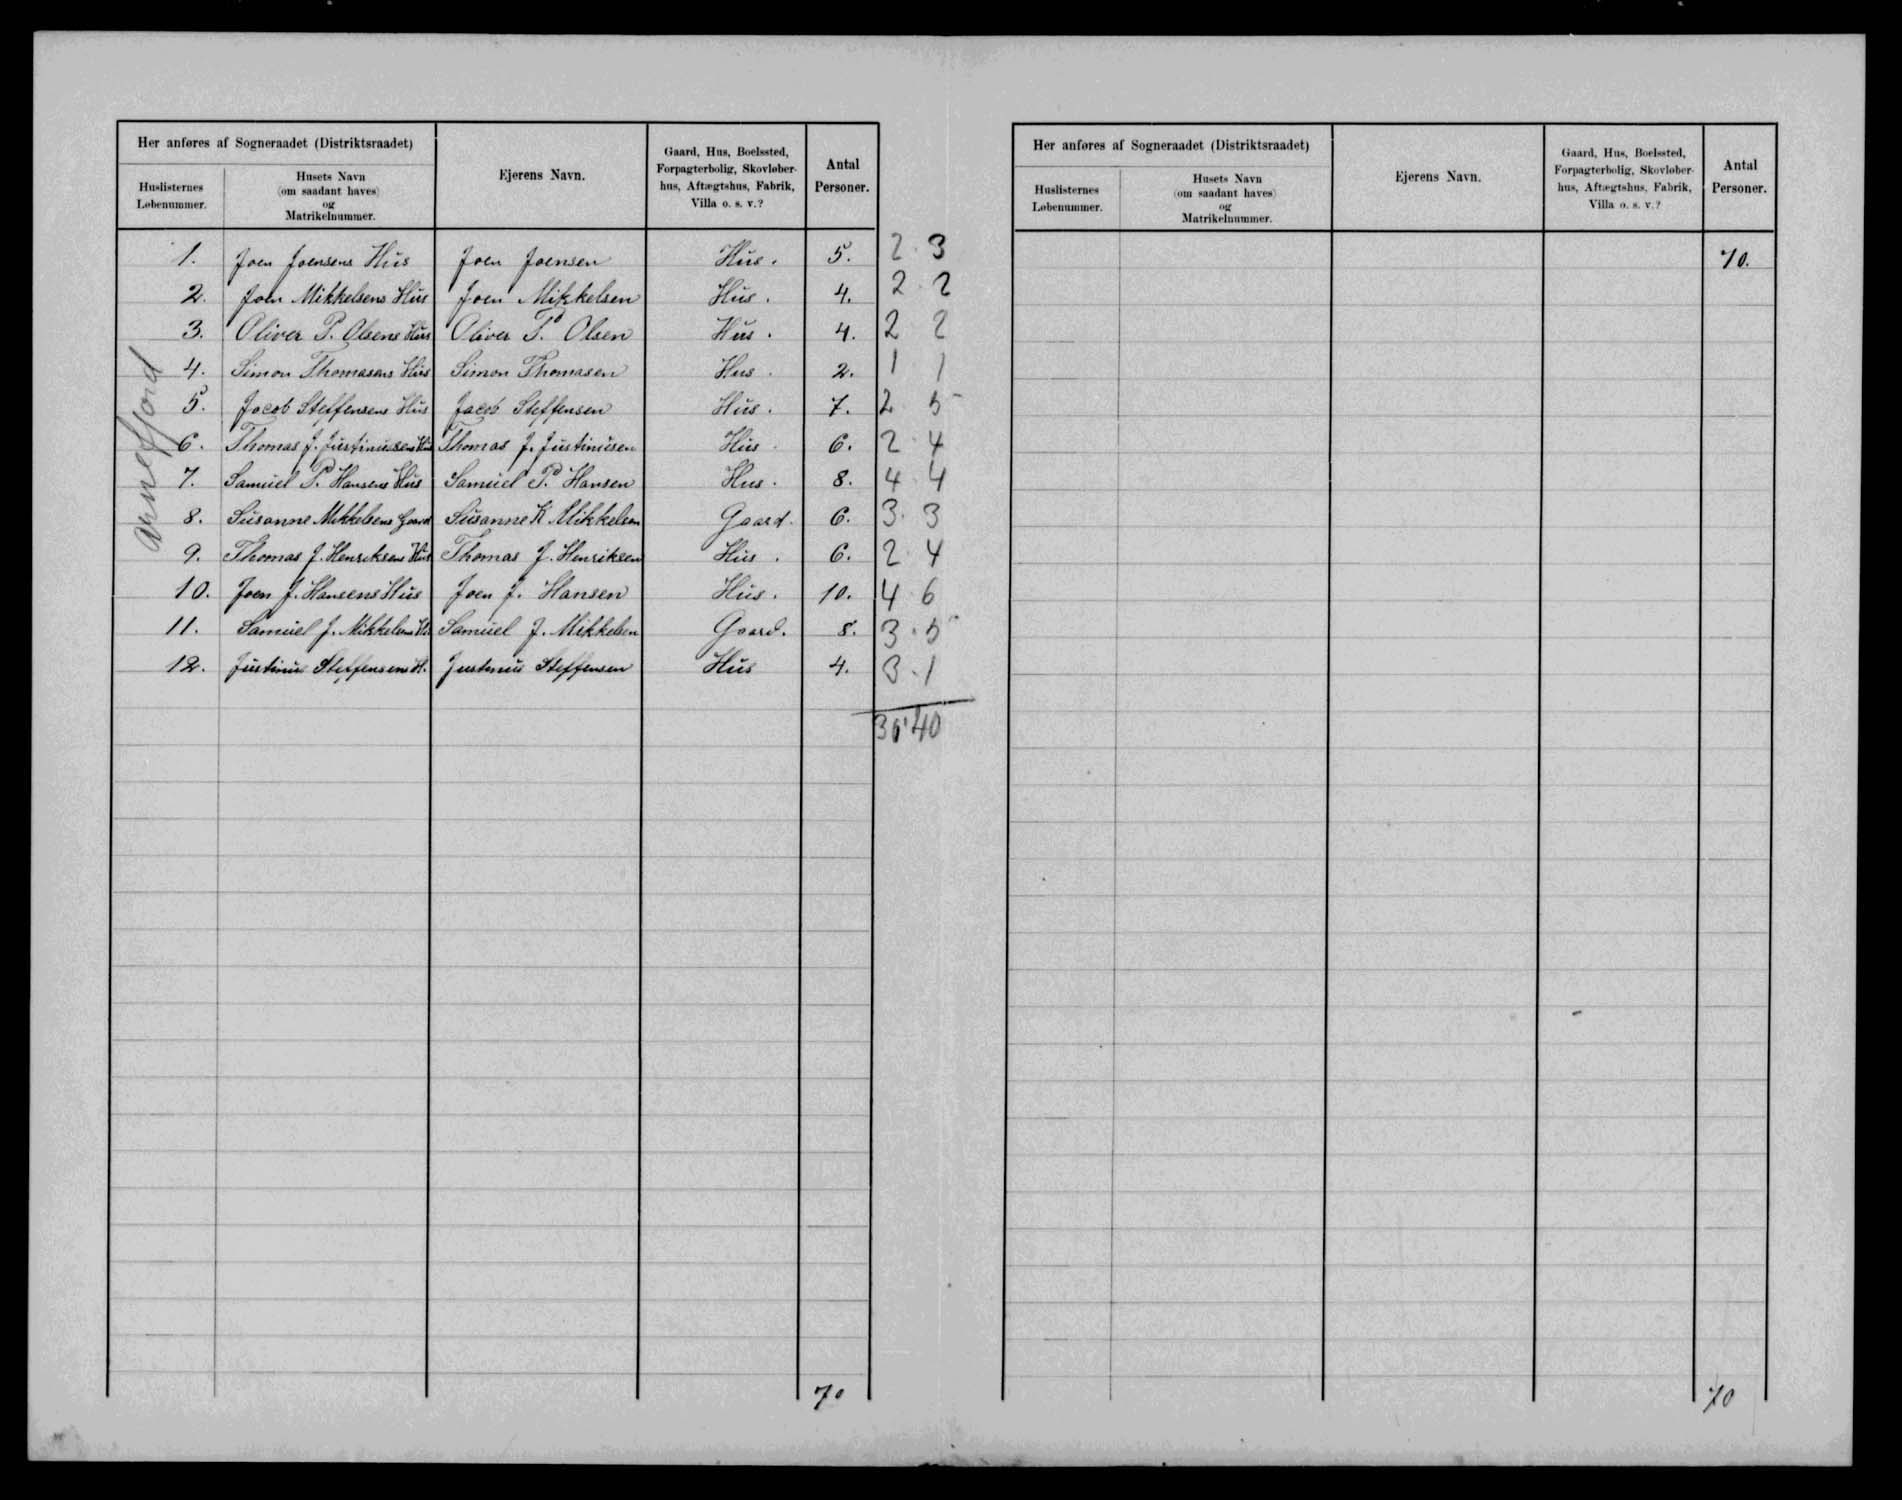 Her anføres af Sogneraadet (Distriktsraadet)
Huslisternes Løbenummer.
Husets Navn (om saadant haves) og Matrikelnummer.
Ejerens Navn.
Gaard, Hus, Boelssted, Forpagterbolig, Skovløberhus, Aftægtshus, Fabrik, Villa o. s. v.?
Antal Personer.
Arnefjord
1. Joen Joensens Hus Joen Joensen Hus. 5. 2. 3
2. Joen Mikkelsens Hus Joen Mikkelsen Hus. 4. 2. 2
3. Oliver P. Olsens Hus Oliver P. Olsen Hus. 4. 2 2
4. Simon Thomasens Hus Simon Thomasen Hus. 2. 1 1
5. Jacob Steffensens Hus Jacob Steffensen Hus. 7. 2 5
6. Thomas J. Justinusens Hus Thomas J. Justinusen Hus. 6. 2. 4
7. Samuel P. Hansens Hus Samuel P. Hansen Hus. 8. 4. 4
8. Susanne Mikkelsens Gaard Susanne K Mikkelsen Gaard. 6. 3. 3
9. Thomas J. Henriksens Hus Thomas J. Henriksen Hus. 6. 2. 4
10. Joen J. Hansens Hus Joen J. Hansen Hus. 10. 4. 6
11. Samuel J. Mikkelsens Samuel J. Mikkelsen Gaard. 8. 3. 5
12. Justinus Steffensens H. Justinus Steffensen Hus 4. 3. 1
30. 40
70
Her anføres af Sogneraadet (Distriktsraadet)
Huslisternes Løbenummer.
Husets Navn (om saadant haves) og Matrikelnummer.
Ejerens Navn.
Gaard, Hus, Boelssted, Forpagterbolig, Skovløberhus, Aftægtshus, Fabrik, Villa o. s. v.?
Antal Personer.
70.
70